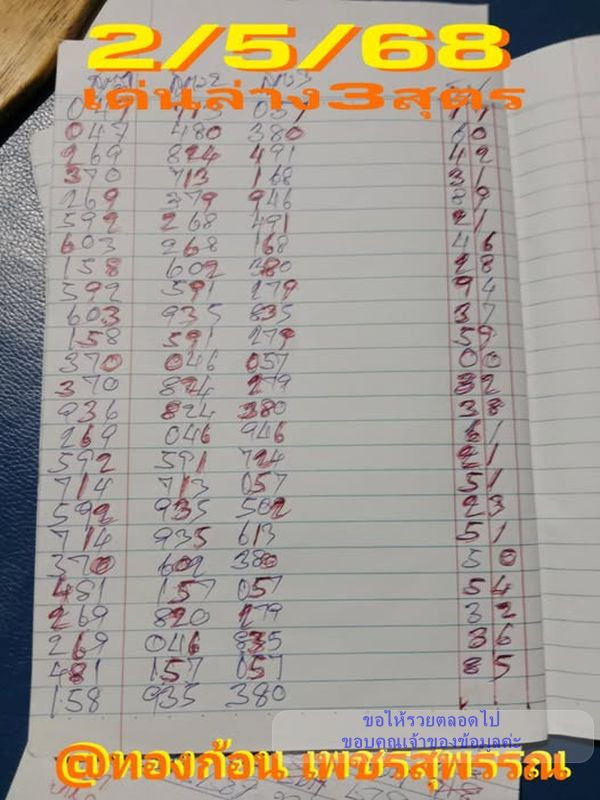 2/5/68
เด่นล่าง3สูตร
047 480 380 60
269 824 491 42
370 713 168 31
269 379 946 89
592 268 491 21
603 268 168 46
158 602 380 28
592 591 279 94
603 935 835 37
158 591 279 59
370 046 057 00
370 824 279 32
936 824 380 38
269 046 946 61
592 591 724 21
714 713 057 51
592 935 502 23
714 935 613 51
370 602 380 50
481 157 057 54
269 820 279 32
269 046 835 36
481 157 057 85
158 935 380
ขอให้รวยตลอดไป
ขอบคุณเจ้าของข้อมูลค่ะ
@ทองก้อน เพชรสุพรรณ